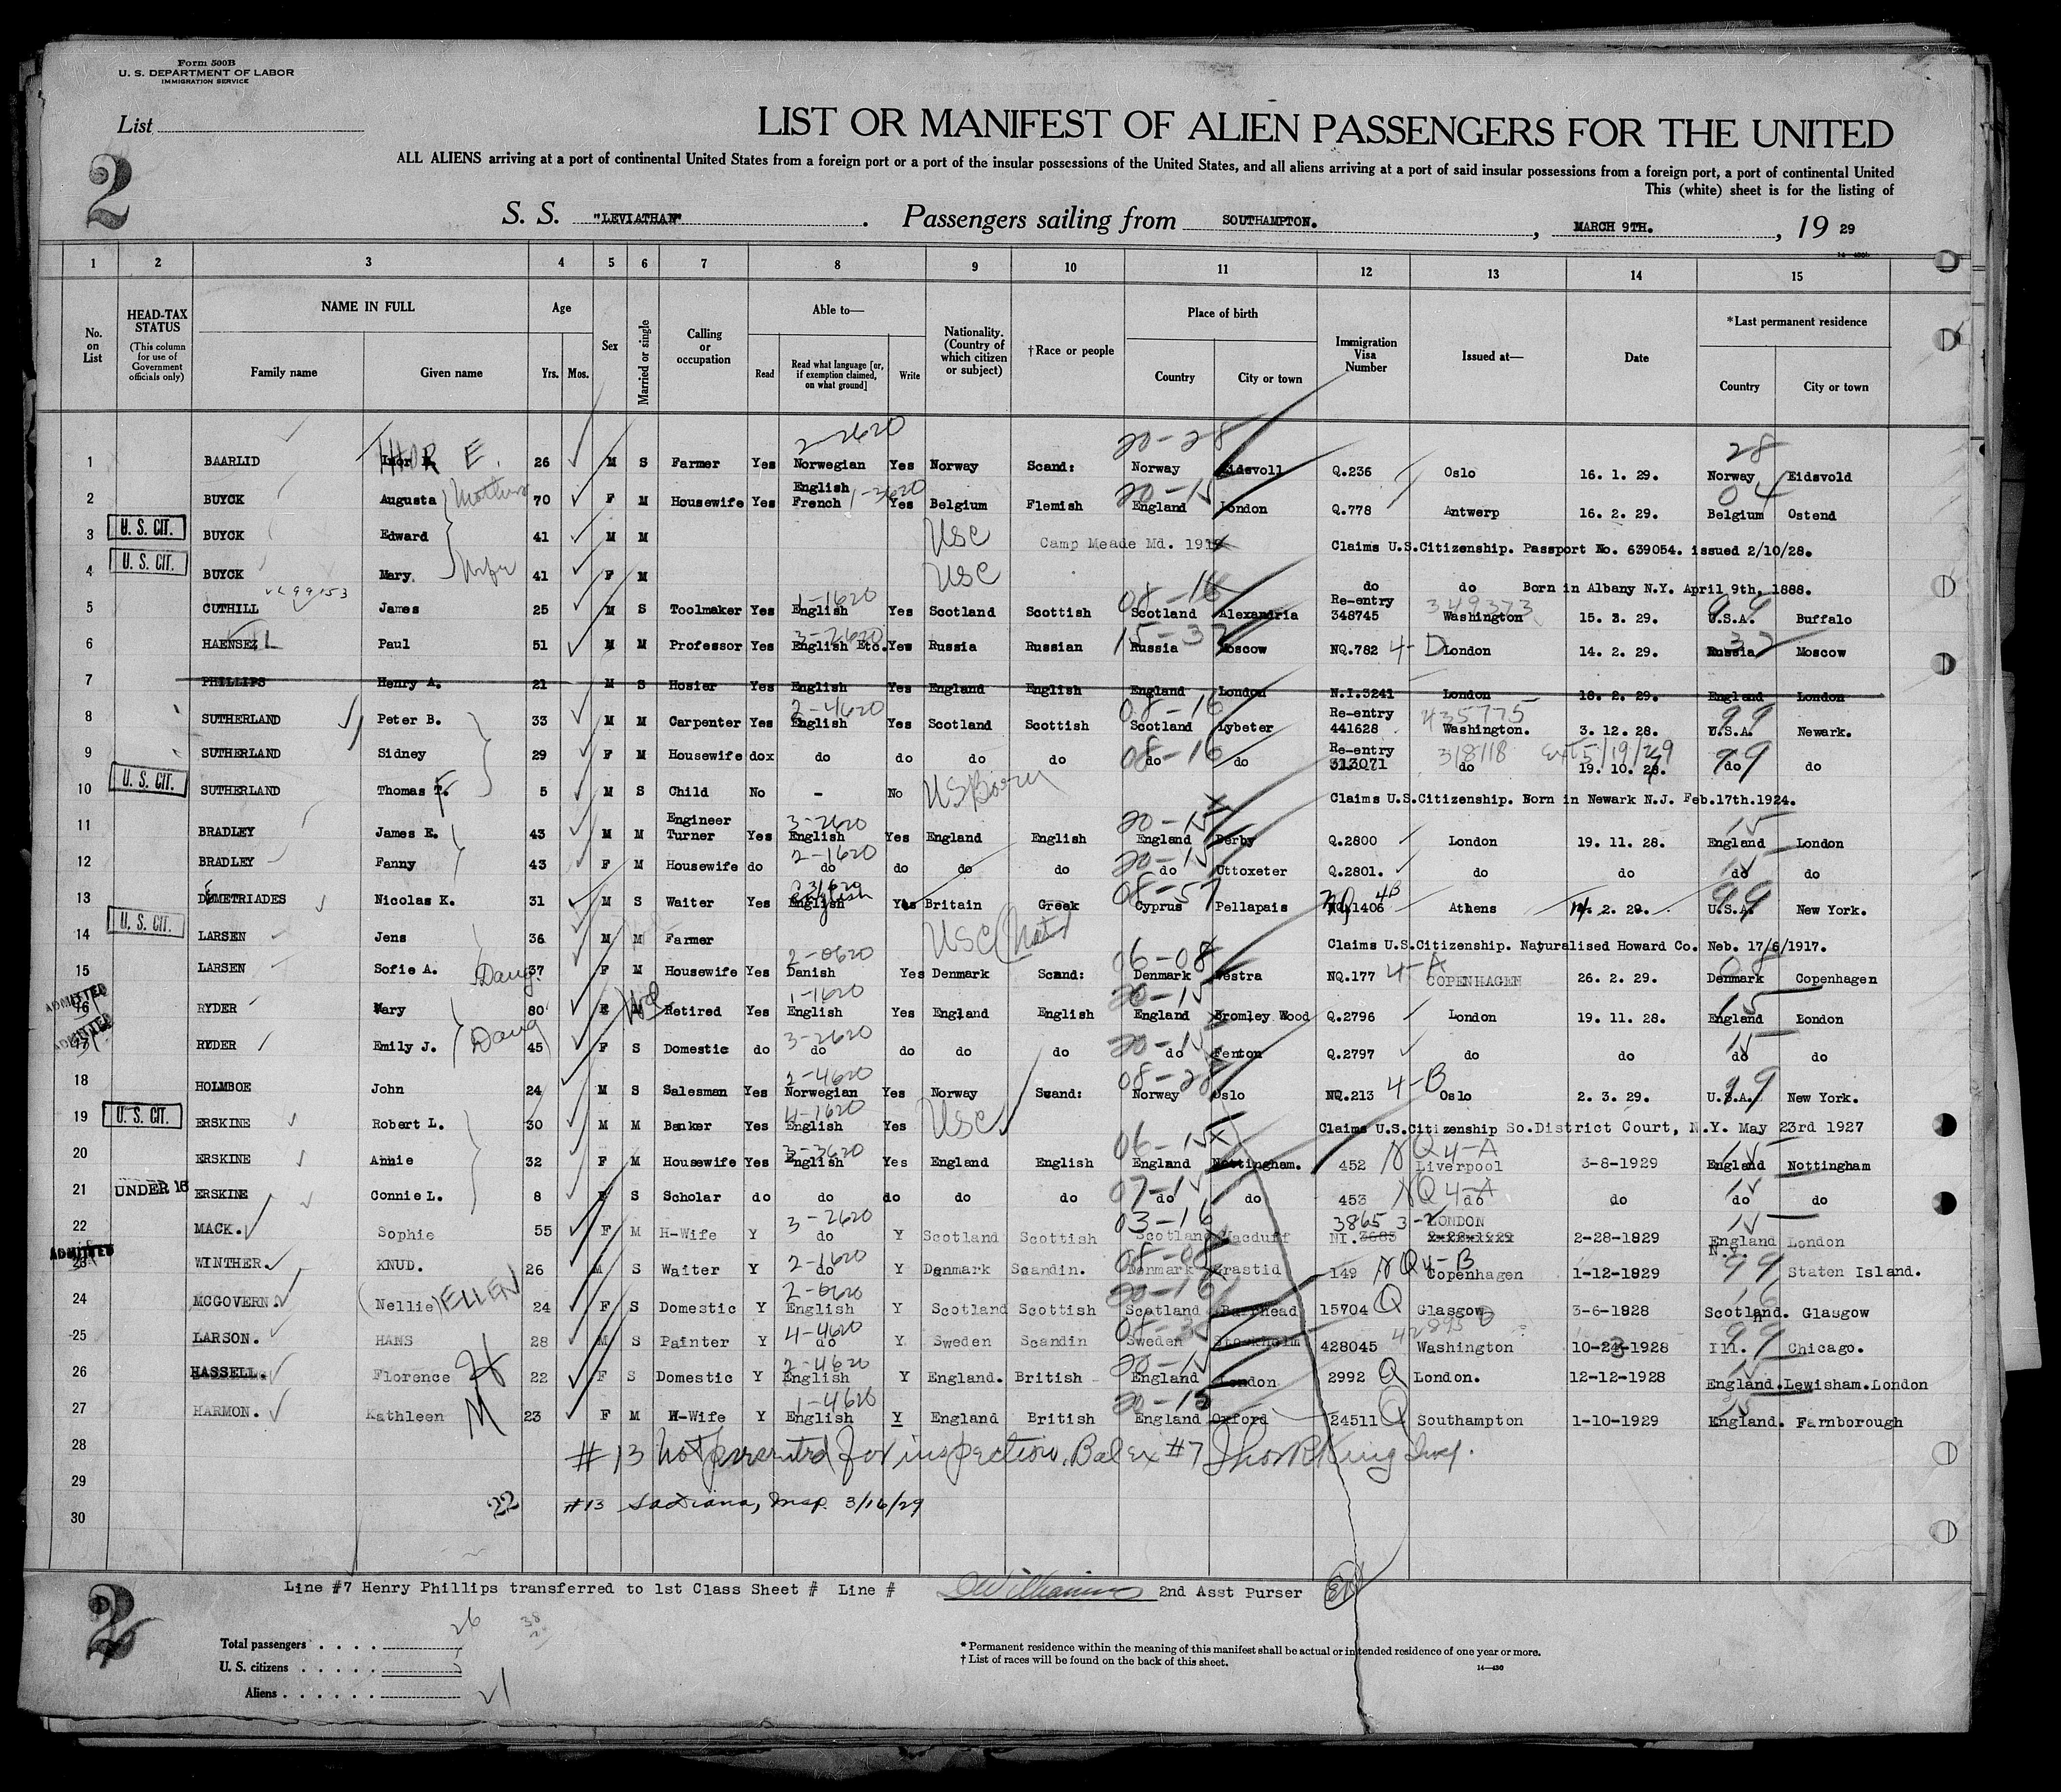 Form 500B
U. S. DEPARTMENT OF LABOR
IMMIGRATION SERVICE
List
2
LIST OR MANIFEST OF ALIEN PASSENGERS FOR THE UNITED
ALL ALIENS arriving at a port of continental United States from a foreign port or a port of the insular possessions of the United States, and all aliens arriving at a port of said insular possessions from a foreign port, a port of continental United
This (white) sheet is for the listing of
S. S. "LEVIATHAN". Passengers sailing from SOUTHAMPTON. , MARCH 9TH. , 19 29
1 2 3 4 5 6 7 8 9 10 11 12 13 14 15
No. on List
HEAD-TAX STATUS (This column for use of Government officials only)
NAME IN FULL Family name Given name
Age Yrs. Mos.
Sex
Married or single
Calling or occupation
Able to— Read Read what language [or, if exemption claimed, on what ground] Write
Nationality. (Country of which citizen or subject)
†Race or people
Place of birth Country City or town
Immigration Visa Number
Issued at—
Date
*Last permanent residence Country City or town
1 BAARLID THOR E. 26 M S Farmer Yes 2-2620 Norwegian Yes Norway Scand: 20-28 Norway Eidsvoll Q.236 Oslo 16. 1. 29. 28 Norway Eidsvold
2 BUYCK Augusta Mother 70 F M Housewife Yes English French 1-2620 Yes Belgium Flemish 20-15 England London Q.778 Antwerp 16. 2. 29. 04 Belgium Ostend
3 U. S. CIT. BUYCK Edward 41 M M USC Camp Meade Md. 191 Claims U.S.Citizenship. Passport No. 639054. issued 2/10/28.
4 U. S. CIT. BUYCK Mary. Wife 41 F M USC do do Born in Albany N.Y. April 9th. 1888.
5 CUTHILL James 25 M S Toolmaker Yes 1-1620 English Yes Scotland Scottish 08-16 Scotland Alexandria Re-entry 348745 349373 Washington 15. 2. 29. 99 U.S.A. Buffalo
6 HAENSEL Paul 51 M M Professor Yes 3-2620 English Etc. Yes Russia Russian 15-32 Russia Moscow NQ.782 4-D London 14. 2. 29. 32 Russia Moscow
7 PHILLIPS Henry A. 21 M S Hosier Yes English Yes England English England London N.I.3241 London 18. 2. 29. England London
8 SUTHERLAND Peter B. 33 M M Carpenter Yes 2-4620 English Yes Scotland Scottish 08-16 Scotland Lybster Re-entry 441628 435775 Washington. 3. 12. 28. 99 U.S.A. Newark.
9 SUTHERLAND Sidney 29 F M Housewife dox do do do do 08-16 do do Re-entry 313071 318118 do Ext 5/19/29 19. 10. 28. 99 do do
10 U. S. CIT. SUTHERLAND Thomas F. 5 M S Child No - No US Born Claims U.S.Citizenship. Born in Newark N.J. Feb.17th.1924.
11 BRADLEY James E. 43 M M Engineer Turner Yes 3-2620 English Yes England English 20-15 England Derby Q.2800 London 19. 11. 28. 15 England London
12 BRADLEY Fanny 43 F M Housewife do 2-1620 do do do do 20-15 do Uttoxeter Q.2801. do do 15 do do
13 DEMETRIADES Nicolas K. 31 M S Waiter Yes English Yes Britain Greek 08-57 Cyprus Pellapais 1406 4B Athens 14. 2. 29. 99 U.S.A. New York.
14 U. S. CIT. LARSEN Jens 36 M M Farmer USC (Nat) Claims U.S.Citizenship. Naturalised Howard Co. Neb. 17/6/1917.
15 LARSEN Sofie A. 37 F M Housewife Yes 2-0620 Danish Yes Denmark Scand: 06-08 Denmark Vestra NQ.177 4-A COPENHAGEN 26. 2. 29. 08 Denmark Copenhagen
ADMITTED 16 RYDER Mary 80 F Wd Retired Yes 1-1620 English Yes England English 20-15 England Bromley Wood Q.2796 London 19. 11. 28. 15 England London
ADMITTED 17 RYDER Emily J. Daug 45 F S Domestic do 3-2620 do do do do 20-15 do Fenton Q.2797 do do 15 do do
18 HOLMBOE John 24 M S Salesman Yes 2-4620 Norwegian Yes Norway Scand: 08-28 Norway Oslo NQ.213 4-B Oslo 2. 3. 29. 99 U.S.A. New York.
19 U. S. CIT. ERSKINE Robert L. 30 M M Banker Yes 4-1620 English Yes USC Claims U.S.Citizenship So.District Court, N.Y. May 23rd 1927
20 ERSKINE Annie 32 F M Housewife Yes 3-3620 English Yes England English 06-15 England Nottingham. 452 NQ 4-A Liverpool 3-8-1929 15 England Nottingham
21 UNDER 16 ERSKINE Connie L. 8 F S Scholar do do do do do 07-15 do do 453 NQ 4-A do do 15 do do
22 MACK. Sophie 55 F M H-Wife Y 3-2620 do Y Scotland Scottish 03-16 Scotland Macduff 3865 3-2 NI.3685 LONDON 2-28-1929 2-28-1929 15 England London
ADMITTED 23 WINTHER. KNUD. 26 M S Waiter Y 2-1620 do Y Denmark Scandin. 08-08 Denmark Krastid 149 NQ 4-B Copenhagen 1-12-1929 N.Y. 99 Staten Island.
24 MCGOVERN. (Nellie) ELLEN 24 F S Domestic Y 2-0620 English Y Scotland Scottish 20-16 Scotland Barrhead 15704 Q Glasgow 3-6-1928 16 Scotland. Glasgow
25 LARSON. HANS 28 M S Painter Y 4-4620 do Y Sweden Scandin Sweden Stockholm 428045 Washington 10-24-1928 99 Ill. Chicago.
26 HASSELL. Florence H 22 F S Domestic Y 2-4620 English Y England. British 20-15 England London 2992 Q London. 12-12-1928 15 England. Lewisham.London
27 HARMON. Kathleen M 23 F M H-Wife Y 1-4620 English Y England British 20-15 England Oxford 24511 Q Southampton 1-10-1929 15 England. Farnborough
28 #13 Not presented for inspection. Bal Ex #7
29
22 #13 Insp. 3/16/29
30
Line #7 Henry Phillips transferred to 1st Class Sheet # Line # 2nd Asst Purser
2
Total passengers . . . . 26
U. S. citizens . . . . . 5
Aliens . . . . . . 21
* Permanent residence within the meaning of this manifest shall be actual or intended residence of one year or more.
† List of races will be found on the back of this sheet.
14—430